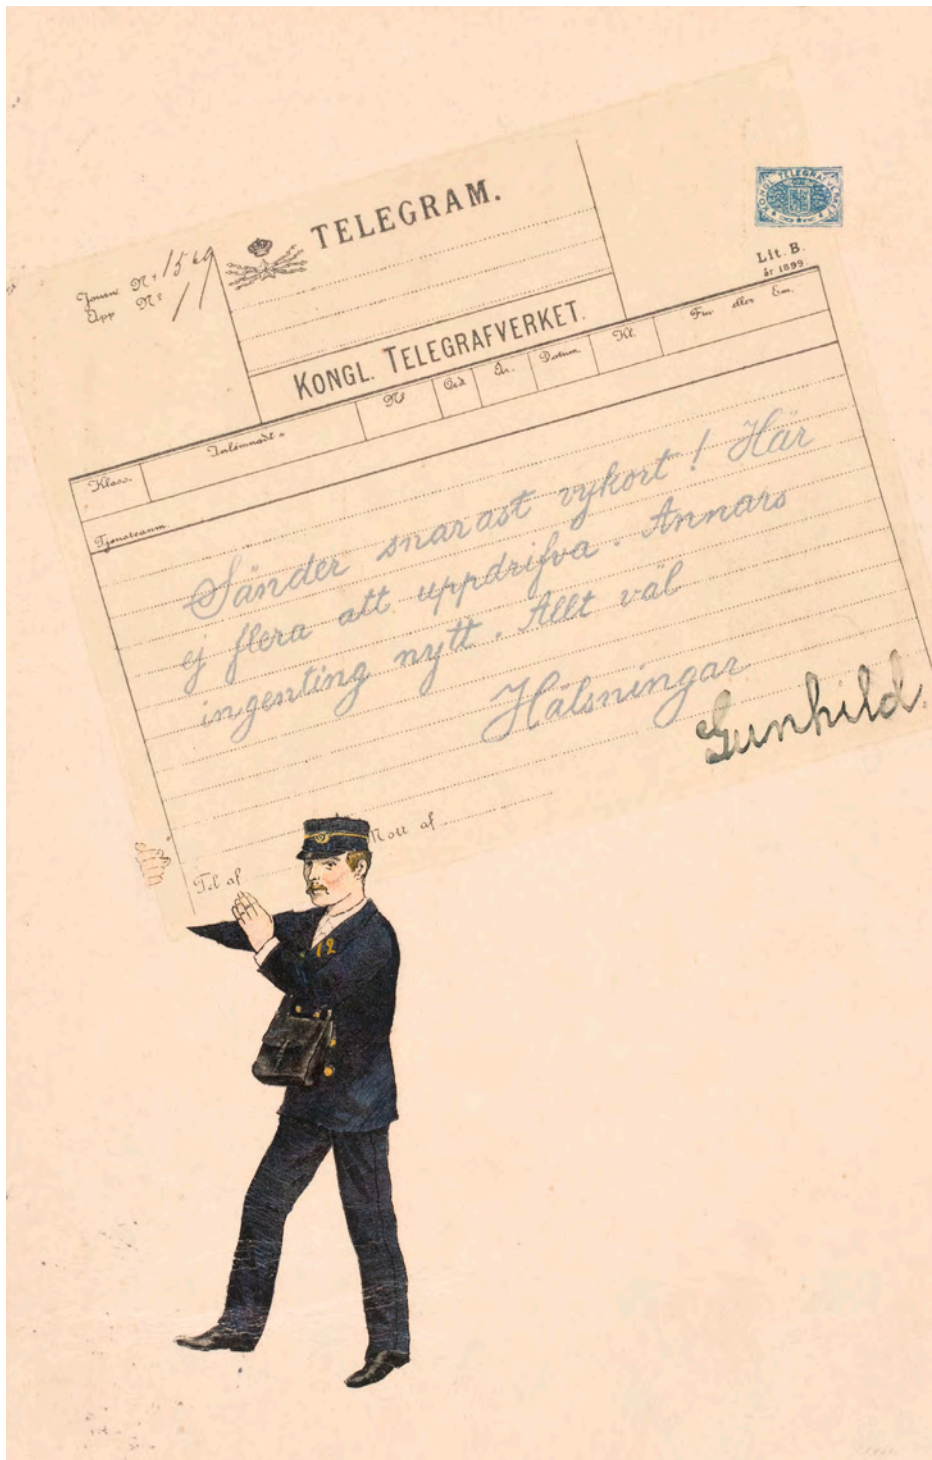 TELEGRAM.
KONGL. TELEGRAFVERKET.
KONGL. TELEGRAFVERKET
Lit. B.
år 1899
Journ Nr
App Nr
Klass.
Inlämnadt
Nr
Ord
År.
Datum
Kl.
Fm eller Em.
Tjensteanm.
Sänder snarast vykort! Här
ej flera att uppdrifva. Annars
ingenting nytt. Allt väl
Hälsningar
Gunhild.
Tel af
Mott af
12